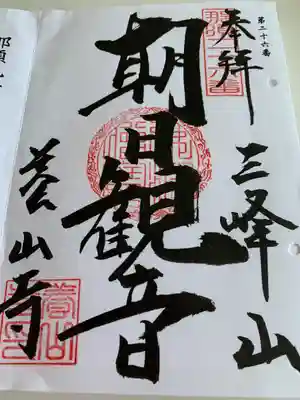 第二十六番
奉拝
三峰山
朝日観音
養山寺